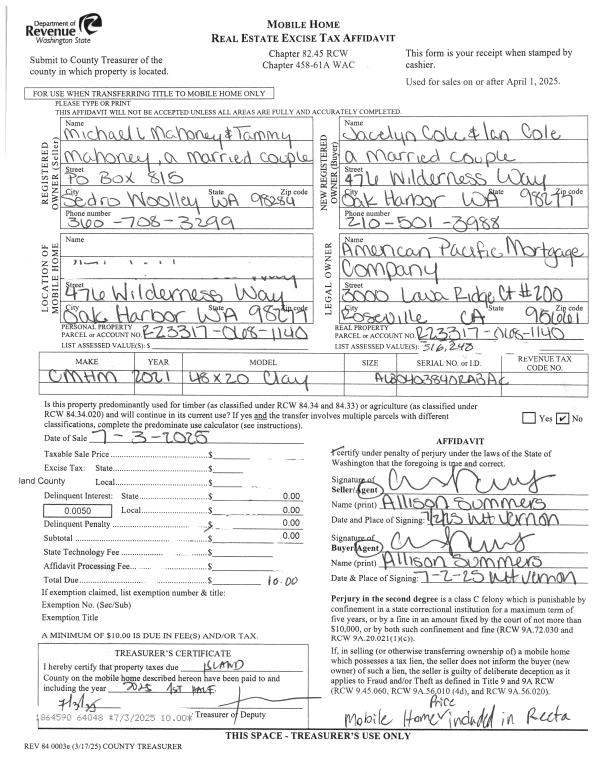 Department of
Revenue
Washington State
MOBILE HOME
REAL ESTATE EXCISE TAX AFFIDAVIT
Chapter 82.45 RCW
Chapter 458-61A WAC
Submit to County Treasurer of the
county in which property is located.
This form is your receipt when stamped by
cashier.
Used for sales on or after April 1, 2025.
FOR USE WHEN TRANSFERRING TITLE TO MOBILE HOME ONLY
PLEASE TYPE OR PRINT
THIS AFFIDAVIT WILL NOT BE ACCEPTED UNLESS ALL AREAS ARE FULLY AND ACCURATELY COMPLETED.
REGISTERED
OWNER (Seller)
Name
Michael L Mahoney & Tammy
Mahoney, a married couple
Street
PO Box 815
City State Zip code
Sedro Woolley WA 98284
Phone number
360-708-3299
NEW REGISTERED
OWNER (Buyer)
Name
Jacelyn Cole & Ian Cole
a married couple
Street
476 Wilderness Way
City State Zip code
Oak Harbor WA 98277
Phone number
210-501-3988
LOCATION OF
MOBILE HOME
Name
Street
476 Wilderness Way
City State Zip code
Oak Harbor WA 98277
PERSONAL PROPERTY
PARCEL or ACCOUNT NO. R23317-068-1140
LIST ASSESSED VALUE(S): $
LEGAL OWNER
Name
American Pacific Mortgage
Company
Street
3000 Lava Ridge Ct #200
City State Zip code
Roseville CA 95661
REAL PROPERTY
PARCEL or ACCOUNT NO. R23317-068-1140
LIST ASSESSED VALUE(S): 516,248
MAKE YEAR MODEL SIZE SERIAL NO. or I.D. REVENUE TAX
CODE NO.
CMHM 2021 48x20 Clay ALB040384ORABAC
Is this property predominantly used for timber (as classified under RCW 84.34 and 84.33) or agriculture (as classified under
RCW 84.34.020) and will continue in its current use? If yes and the transfer involves multiple parcels with different
classifications, complete the predominate use calculator (see instructions).
Yes ✔ No
Date of Sale 7-3-2025
Taxable Sale Price $
Excise Tax: State $
land County
Local $
Delinquent Interest: State $ 0.00
0.0050
Local $ 0.00
Delinquent Penalty $ 0.00
Subtotal $ 0.00
State Technology Fee $
Affidavit Processing Fee $
Total Due $ 10.00
If exemption claimed, list exemption number & title:
Exemption No. (Sec/Sub)
Exemption Title
A MINIMUM OF $10.00 IS DUE IN FEE(S) AND/OR TAX.
AFFIDAVIT
I certify under penalty of perjury under the laws of the State of
Washington that the foregoing is true and correct.
Signature of
Seller/Agent
Name (print) Allison Summers
Date and Place of Signing: 7/2/25 Mt Vernon
Signature of
Buyer/Agent
Name (print) Allison Summers
Date & Place of Signing: 7-2-25 Mt Vernon
Perjury in the second degree is a class C felony which is punishable by
confinement in a state correctional institution for a maximum term of
five years, or by a fine in an amount fixed by the court of not more than
$10,000, or by both such confinement and fine (RCW 9A.72.030 and
RCW 9A.20.021(1)(c)).
If, in selling (or otherwise transferring ownership of) a mobile home
which possesses a tax lien, the seller does not inform the buyer (new
owner) of such a lien, the seller is guilty of deliberate deception as it
applies to Fraud and/or Theft as defined in Title 9 and 9A RCW
(RCW 9.45.060, RCW 9A.56,010 (4d), and RCW 9A.56.020).
TREASURER'S CERTIFICATE
I hereby certify that property taxes due ISLAND
County on the mobile home described hereon have been paid to and
including the year 2025 1ST HALF
7/3/25
Treasurer of Deputy
1864590 64048 *7/3/2025 10.00*
Price
Mobile Home included in Reeta
THIS SPACE - TREASURER'S USE ONLY
REV 84 0003e (3/17/25) COUNTY TREASURER